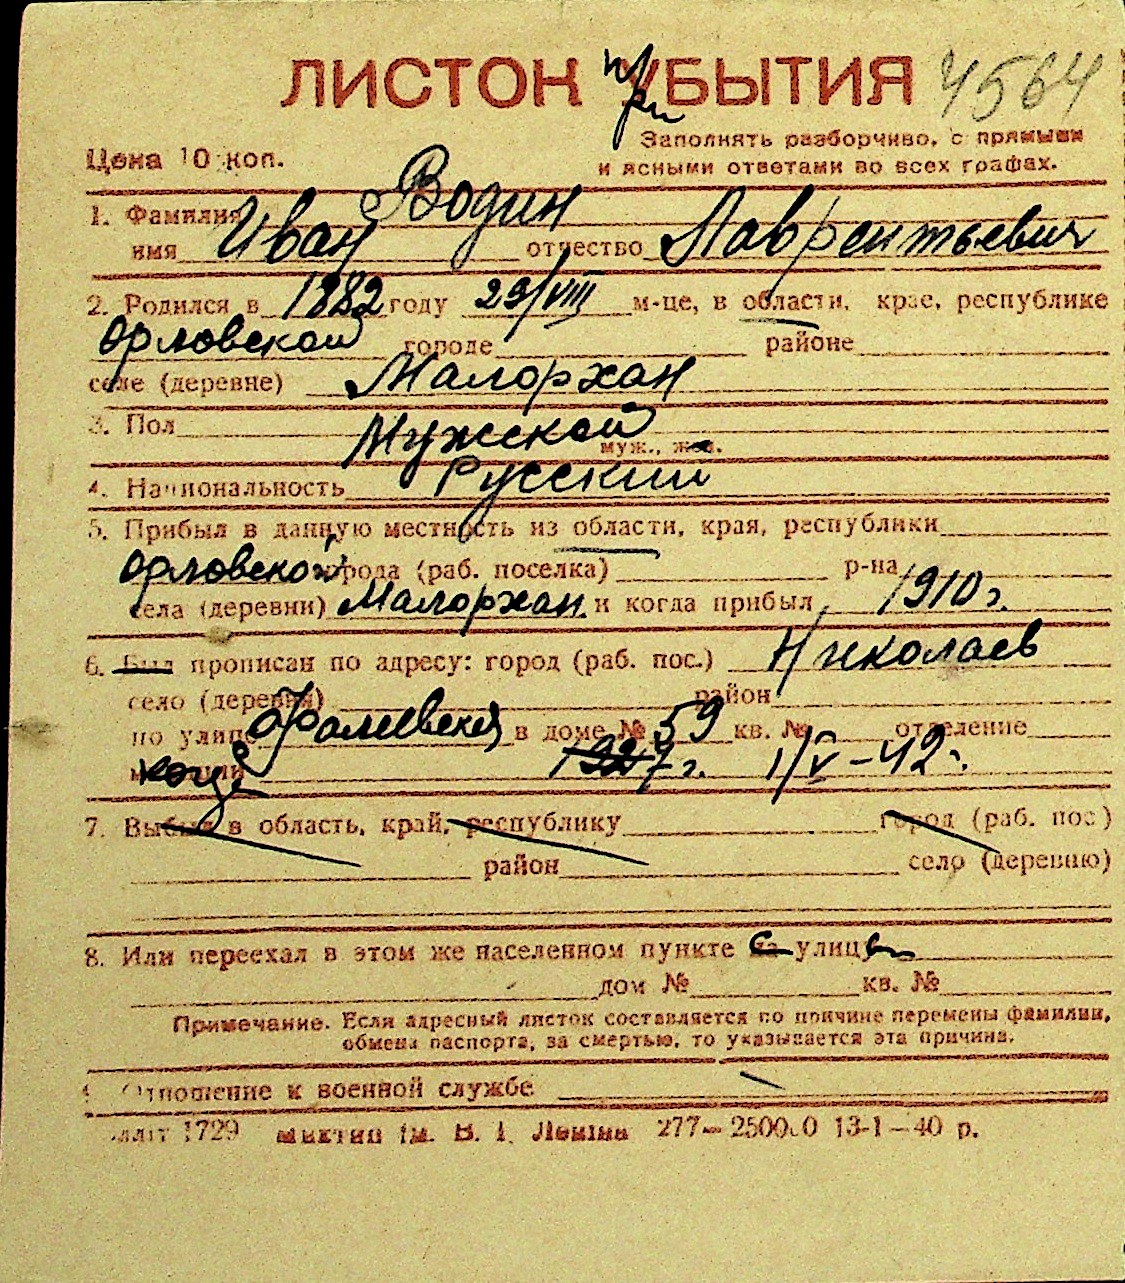 ЛИСТОК УБЫТИЯ 4564
при
Заполнять разборчиво, с прямыми
Цена 10 коп. и ясными ответами во всех графах.
1. Фамилия Водин
имя Иван отчество Лаврентьевич
2. Родился в 1882 году 29/VIII м-це, в области, крае, республике
Орловской городе районе
селе (деревне) Малорхан
3. Пол Мужской муж., жен.
4. Национальность Русский
5. Прибыл в данную местность из области, края, республики
Орловской города (раб. поселка) р-на
села (деревни) Малорхан и когда прибыл 1910 г.
6. Был прописан по адресу: город (раб. пос.) Николаев
село (деревня) район
по улице Фалиевской в доме № 59 кв. № отделение
1927 г. 1/V-42 г.
7. Выбыл в область, край, республику город (раб. пос)
район село (деревню)
8. Или переехал в этом же населенном пункте с улицы
дом № кв. №
Примечание. Если адресный листок составляется по причине перемены фамилии,
обмена паспорта, за смертью, то указывается эта причина.
Отношение к военной службе —
1729 277— 13-1—40 р.